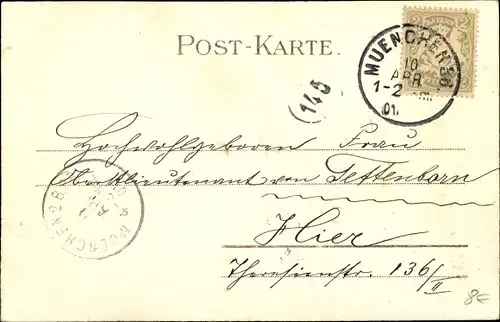 POST-KARTE.
BAYERN
MUENCHEN 36.
10
APR
1-2 Nm.
01.
(145
Hochwohlgeboren Frau
Oberstlieutenant von Tettenborn
Hier
Theresienstr. 136/II
MUENCHEN 2 B
8€